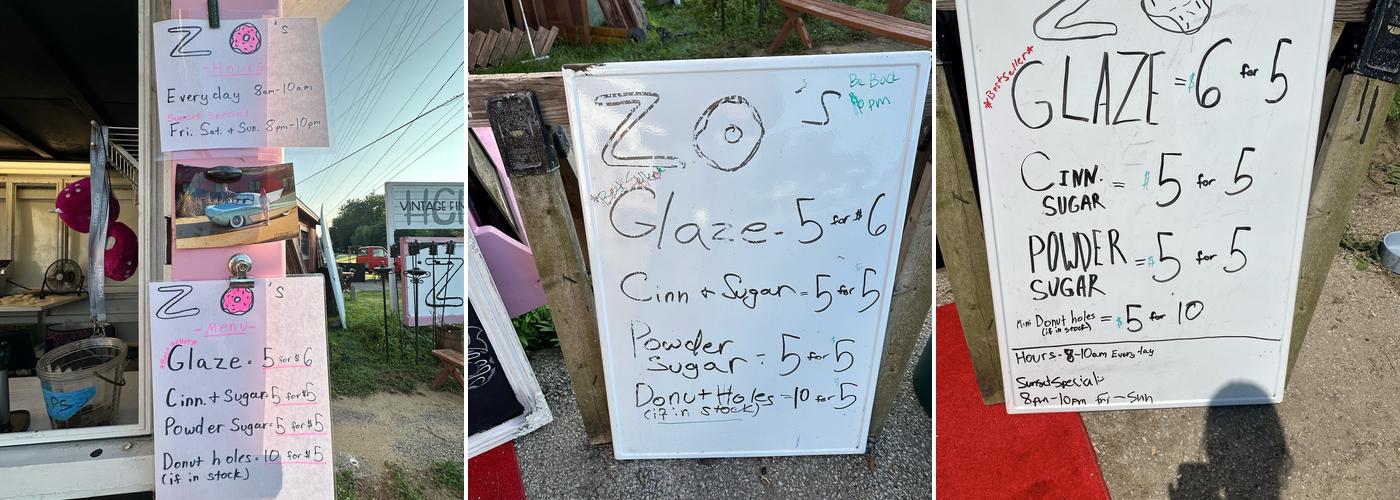 Z O 's
-Hours-
Everyday 8am-10am
Sunset Special
Fri. Sat. + Sun. 8pm-10pm
VINTAGE
Z O 's
-Menu-
*Bestseller*
Glaze = 5 for $6
Cinn. + Sugar = 5 for $5
Powder Sugar = 5 for $5
Donut holes = 10 for $5
(if in stock)
PS
ZO's
Be Back
*Best Seller*
Glaze - 5 for $6
Cinn + Sugar = 5 for 5
Powder
Sugar = 5 for 5
Donut Holes = 10 for 5
(if in stock)
ZO
*Bestseller*
GLAZE = $6 for 5
CINN.
SUGAR = $5 for 5
POWDER
SUGAR = $5 for 5
Mini Donut holes = $5 for 10
(if in stock)
Hours - 8-10am Everyday
Sunset Special:
8pm-10pm Fri - Sun